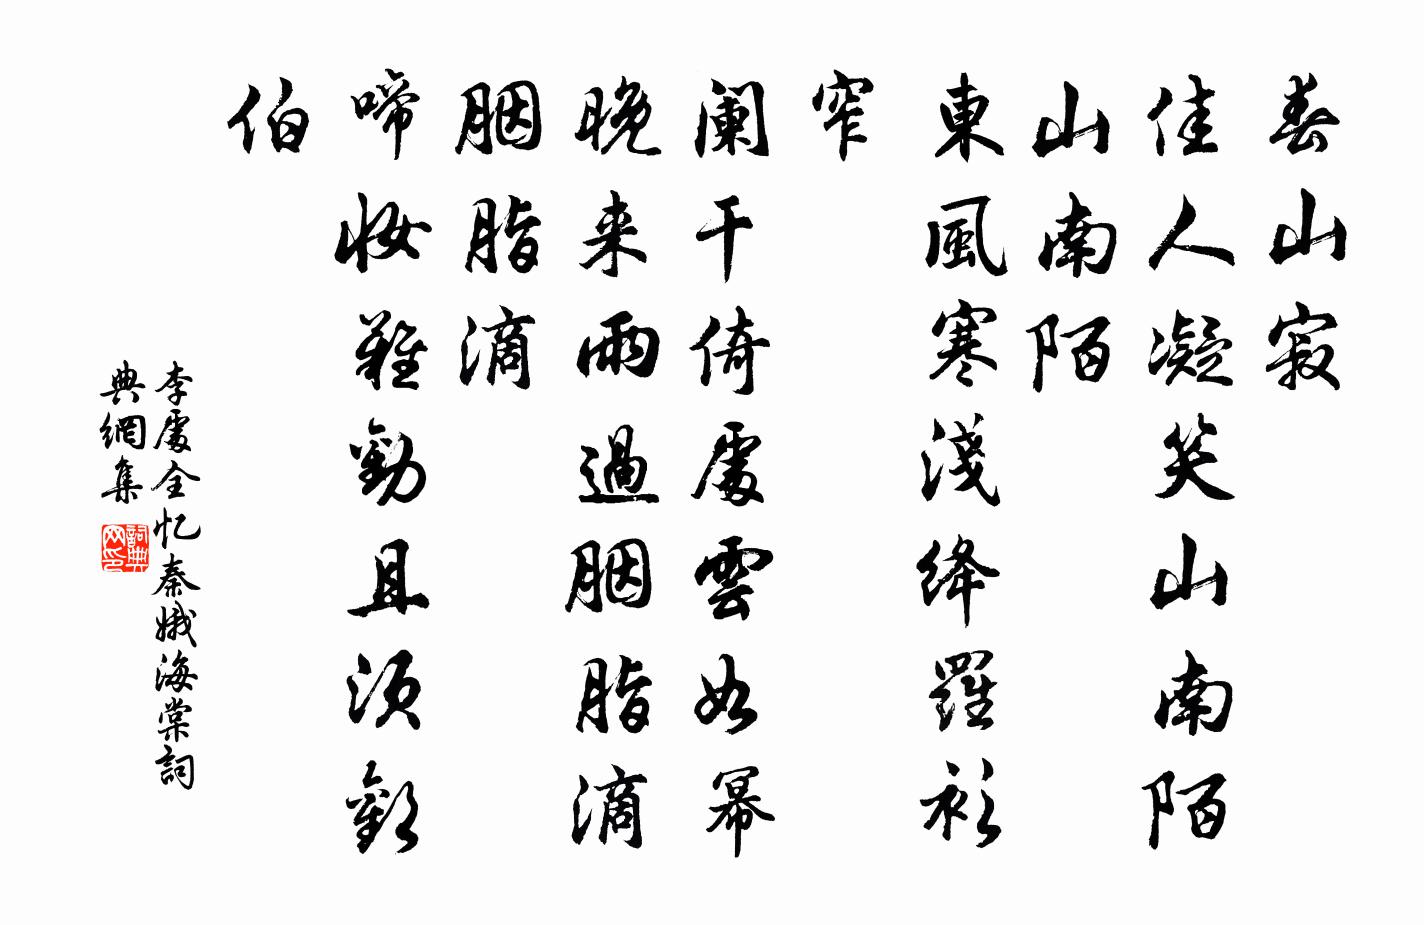 春山寂
佳人凝笑山南陌
山南陌
東風寒淺絳羅衫
窄
阑干倚處雲如幂
晚来雨過胭脂滴
胭脂滴
啼妆難勸且须歡
伯
李處全忆秦娥海棠詞
典網集
詞典
网印